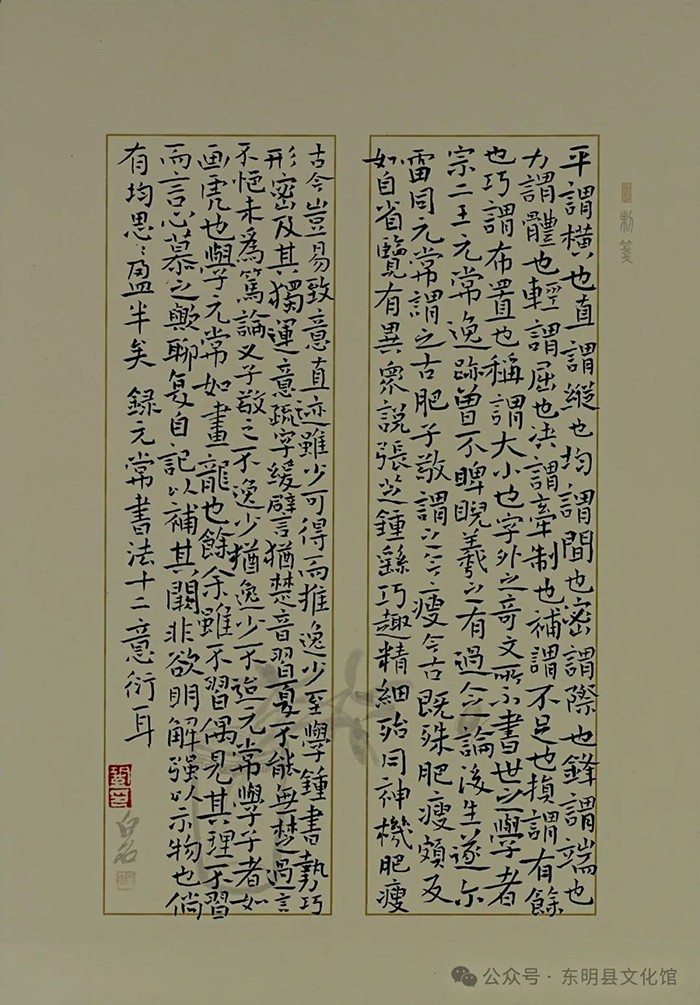 平謂橫也直謂縱也均謂間也密謂際也鋒謂端也
力謂體也輕謂屈也决謂牽制也補謂不足也損謂有餘
也巧謂布置也稱謂大小也字外之奇文所不書世之學者
宗二王元常逸跡曾不睥睨羲之有過人之論後生遂尔
雷同元常謂之古肥子敬謂之今瘦今古既殊肥瘦頗反
如自省覽有異衆說張芝鍾繇巧趣精細殆同神機肥瘦
古今豈易致意直迹雖少可得而推逸少至學鍾書勢巧
形密及其獨運意疏字緩譬猶楚音習夏不能無楚過言
不悒未爲篤論又子敬之不逸少猶逸少不逮元常學子者如
画虎也學元常如畫龍也餘余雖不習偶見其理不習
而言心慕之歟聊復自記以補其闕非欲明解强以示物也倘
有均思〻盈半矣 録元常書法十二意衍耳
公众号·东明县文化馆